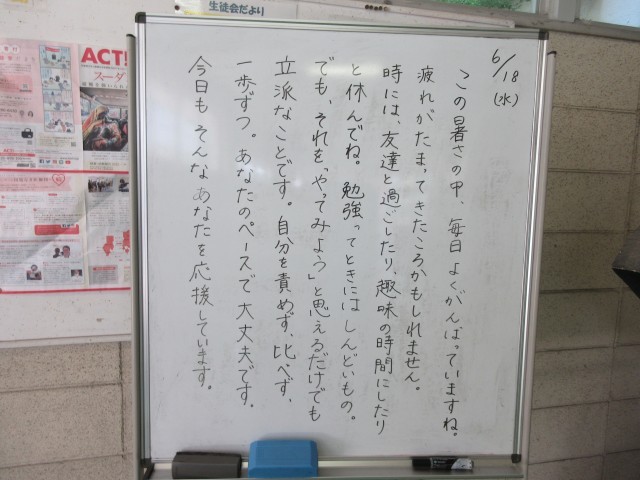 生徒会だより
6/18(水)
この暑さの中、毎日よくがんばっていますね。
疲れがたまってきたころかもしれません。
時には、友達と過ごしたり、趣味の時間にしたり
と休んでね。勉強ってときにはしんどいもの。
でも、それを「やってみよう」と思えるだけでも
立派なことです。自分を責めず、比べず、
一歩ずつ。あなたのペースで大丈夫です。
今日もそんなあなたを応援しています。
ACT!
スーダ